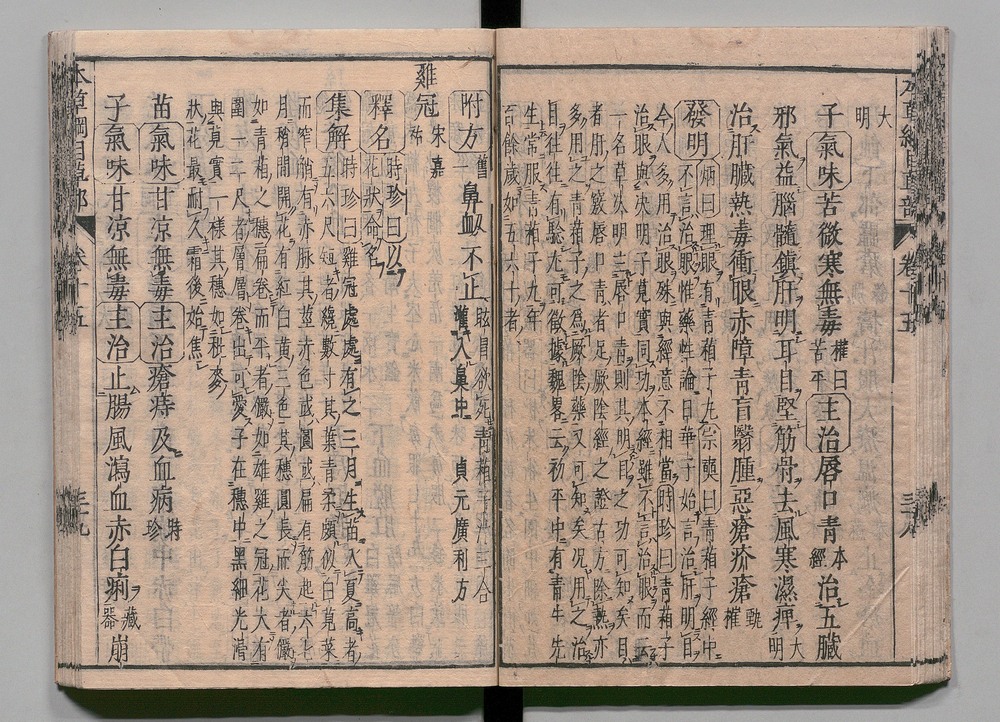 大明
子氣味苦微寒無毒權曰苦平主治唇口青本經治五臟
邪氣益腦髓鎮肝明耳目堅筋骨去風寒濕痺大明
治肝臟熱毒衝眼赤障青盲翳腫惡瘡疥瘡甄權
發明炳曰理眼有青葙子丸宗奭曰青葙子經中
不言治眼惟藥性論日華子始言治肝明目
今人多用治眼殊與經意不相當時珍曰青葙子
治眼與決明子莧實同功本經雖不言治眼而云
一名草決明主唇口青則其明目之功可知矣目
者肝之竅唇口青者足厥陰經之證古方除熱亦
多用之青葙子之爲厥陰藥又可知矣況用之治
目往往有驗尤可徵據魏畧云初平中有青牛先
生常服青葙子丸年
百餘歲如五六十者
附方舊一鼻衄不止眩冒欲死青葙子汁三合
灌入鼻中貞元廣利方
雞冠宋嘉祐
釋名時珍曰以
花狀命名
集解時珍曰雞冠處處有之三月生苗入夏高者
五六尺短者纔數寸其葉青柔頗似白莧菜
而窄䱜有赤脉其莖赤色或圓或扁有筋起六七
月稍間開花有紅白黄三色其穗圓長而尖者儼
如青葙之穗扁卷而平者儼如雄雞之冠花大有
圍一二尺者層層卷出可愛子在穗中黑細光滑
與莧實一樣其穗如秕麥
狀花最耐久霜後始焦
苗氣味甘凉無毒主治瘡痔及血病時珍
子氣味甘凉無毒主治止腸風瀉血赤白痢藏器崩
本草綱目草部
卷十五
三十八
卷十五
三十九